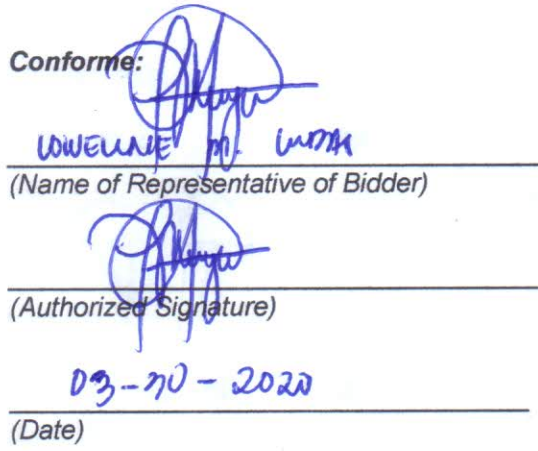 Conforme:
(Name of Representative of Bidder)
(Authorized Signature)
03-30-2020
(Date)